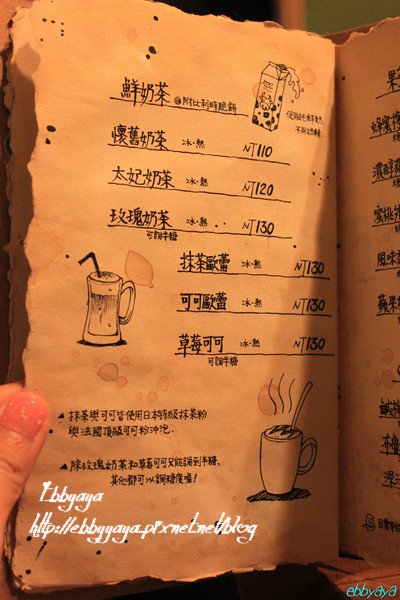 鮮奶茶 @附比利時脆餅
懷舊奶茶 冰·熱 NT110
太妃奶茶 冰·熱 NT120
玫瑰奶茶 冰·熱 NT130
可調半糖
抹茶歐蕾 冰·熱 NT130
可可歐蕾 冰·熱 NT130
草莓可可 冰·熱 NT130
可調半糖
抹茶與可可皆使用日本特級抹茶粉
與法國頂級可可粉沖泡.
除玫瑰奶茶和草莓可可只能調到半糖,
其他都可以調糖度喔!
Ebbyaya
http://ebbyyaya.pixnet.net/blog
ebbyaya